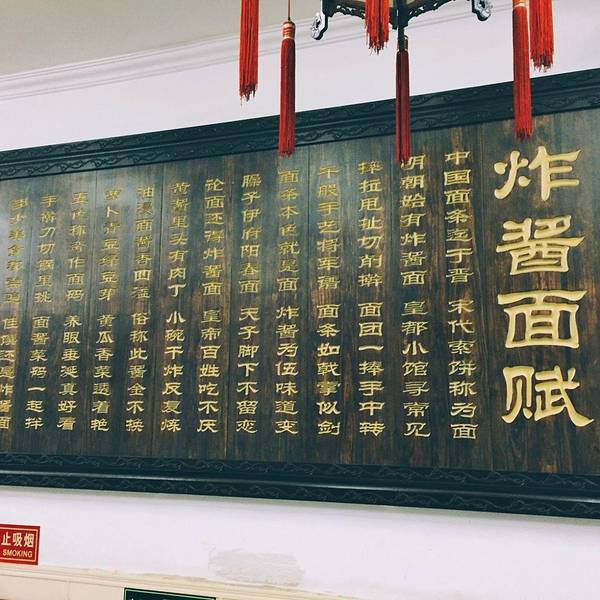 炸酱面赋
中国面条起于晋 宋代索饼称为面
明朝始有炸酱面 皇都小馆寻常见
摔拉甩扯切削擀 面团一捧手中转
千般手艺将军谱 面条如戟掌似剑
面条本也就是面 炸酱为伍味道变
臊子伊府阳春面 天子脚下不留恋
论面还得炸酱面 皇帝百姓吃不厌
黄酱里头有肉丁 小碗干炸反复炼
油漫面酱香四溢 俗称此酱金不换
萝卜青豆绿豆芽 黄瓜香菜透着艳
五色称奇作面码 养眼垂涎真好看
手擀刀切锅里挑 面酱菜码一起拌
佳馔还是炸酱面
止吸烟
SMOKING